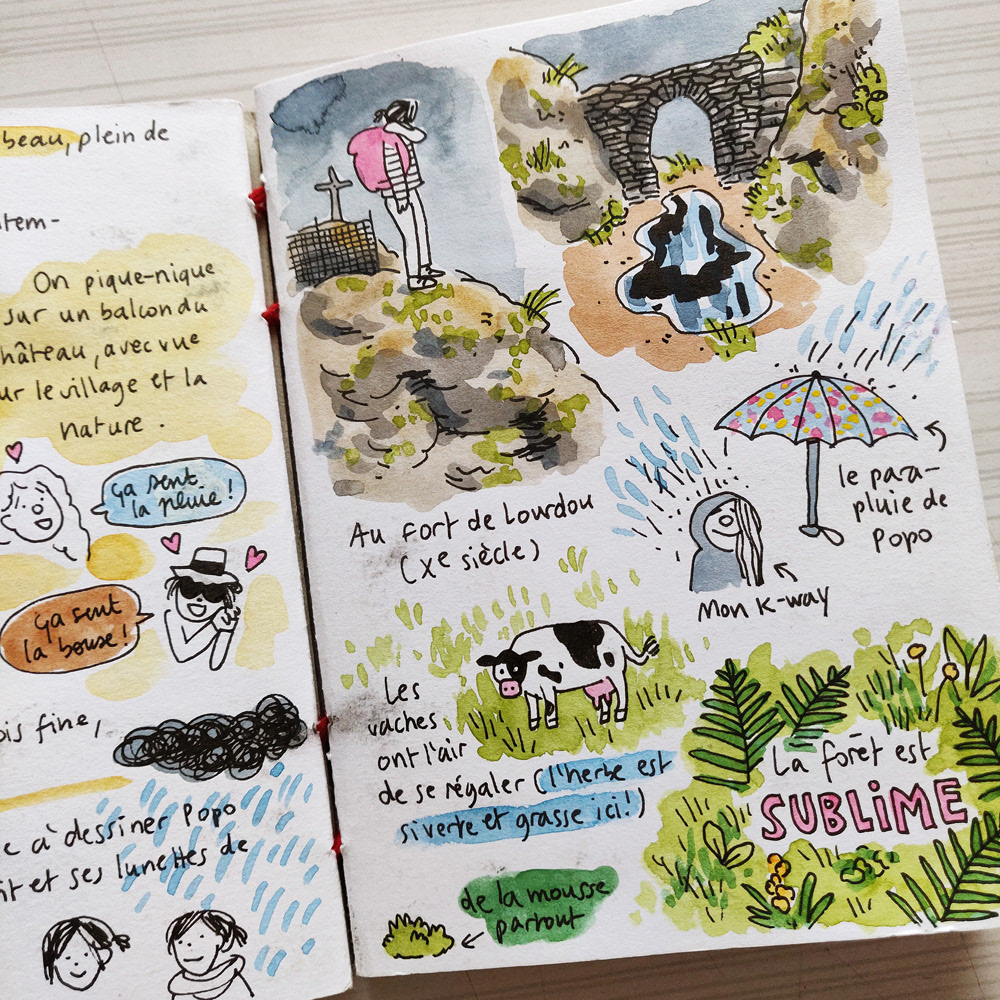 beau, plein de
On pique-nique
sur un balcon du
château, avec vue
sur le village et la
nature.
ça sent
la pluie!
ça sent
la bouse!
fine,
à dessiner Popo
et ses lunettes de
Au Fort de Lourdou
(Xe siècle)
le para-
pluie de
Popo
Mon K-way
Les
vaches
ont l'air
de se régaler (l'herbe est
si verte et grasse ici!)
La forêt est
SUBLiME
de la mousse
partout